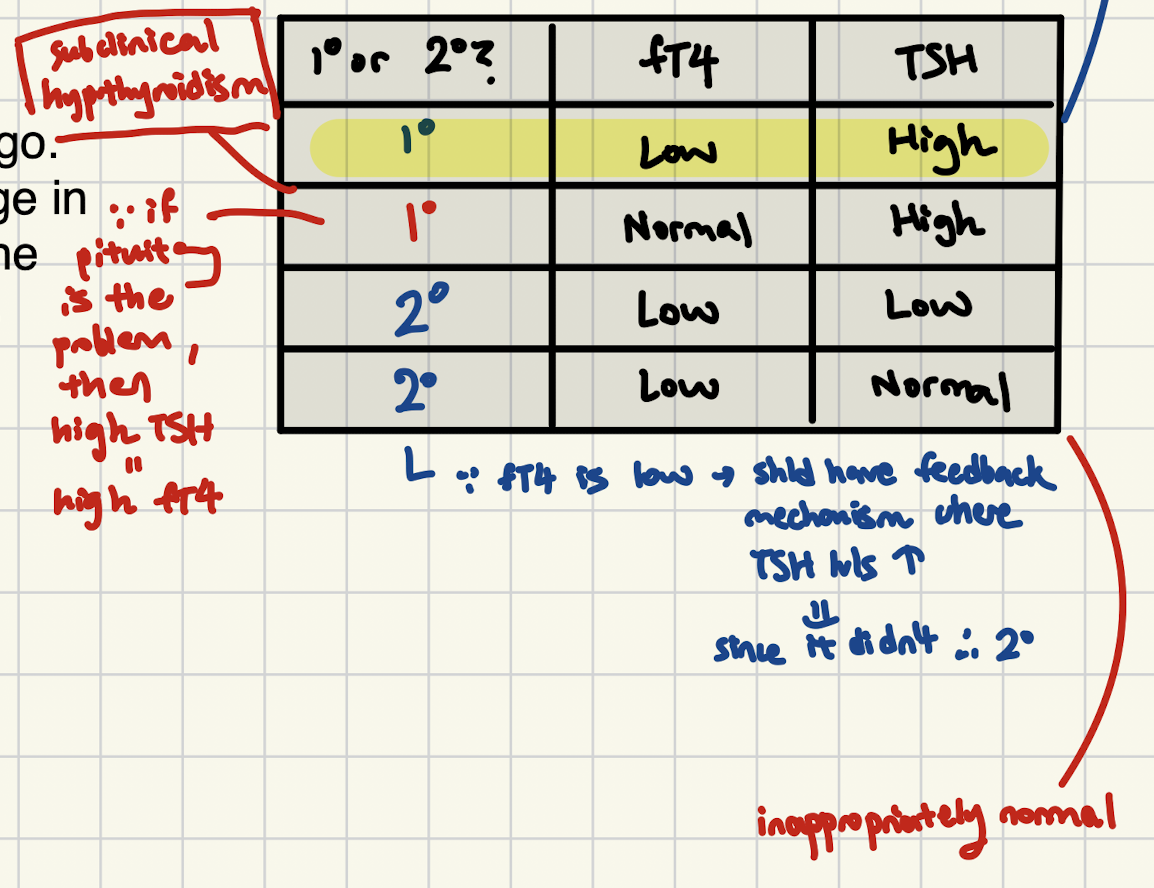 subclinical
hypothyroidism
go.
ge in
ne
∵ if
pituit
is the
problem,
then
high TSH
=
high fT4
1° or 2°? fT4 TSH
1° Low High
1° Normal High
2° Low Low
2° Low Normal
∵ fT4 is low → shld have feedback
mechanism where
TSH lvls ↑
=
since it didn't ∴ 2°
inappropriately normal